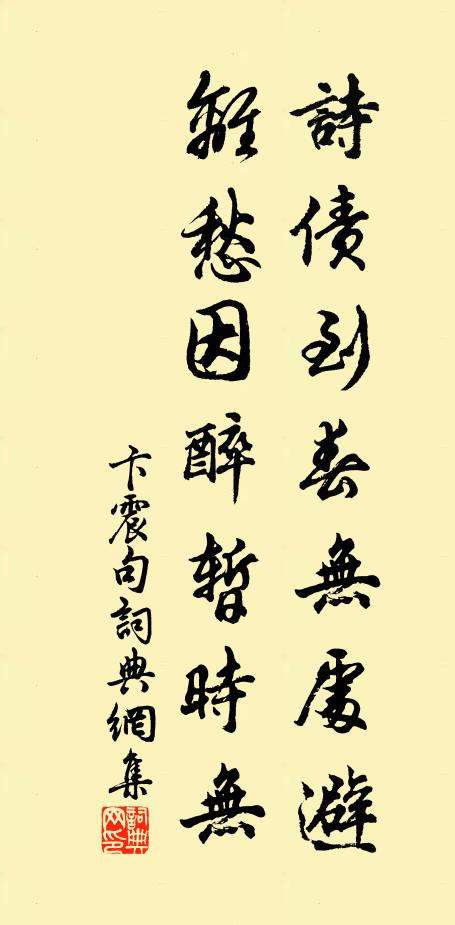 詩債到春無處避
離愁因醉暫時無
卞震句詞典網集
詞典网印